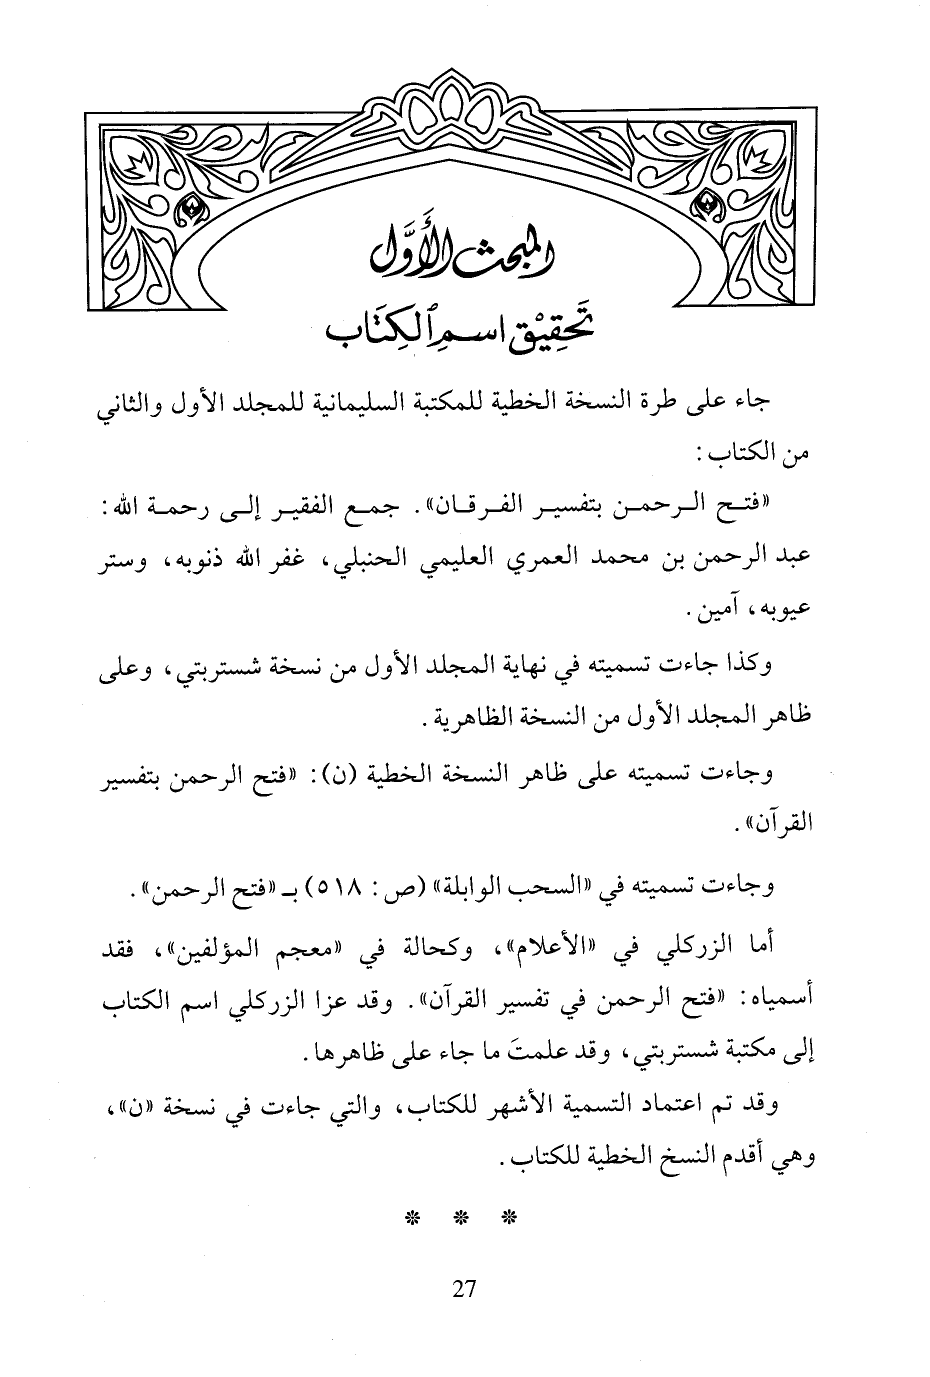 المبحث الأَوَّل
تَحقِيْق اسمِ الكِتَاب
جاء على طرة النسخة الخطية للمكتبة السليمانية للمجلد الأول والثاني
من الكتاب :
«فتح الرحمن بتفسير الفرقان». جمع الفقير إلى رحمة الله:
عبد الرحمن بن محمد العمري العليمي الحنبلي، غفر الله ذنوبه، وستر
عيوبه، آمين.
وكذا جاءت تسميته في نهاية المجلد الأول من نسخة شستربتي، وعلى
ظاهر المجلد الأول من النسخة الظاهرية.
وجاءت تسميته على ظاهر النسخة الخطية (ن): «فتح الرحمن بتفسير
القرآن».
وجاءت تسميته في «السحب الوابلة» (ص: ٥١٨) بـ «فتح الرحمن».
أما الزركلي في «الأعلام»، وكحالة في «معجم المؤلفين»، فقد
أسمياه: «فتح الرحمن في تفسير القرآن». وقد عزا الزركلي اسم الكتاب
إلى مكتبة شستربتي، وقد علمتَ ما جاء على ظاهرها.
وقد تم اعتماد التسمية الأشهر للكتاب، والتي جاءت في نسخة «ن»،
وهي أقدم النسخ الخطية للكتاب.
* * *
27